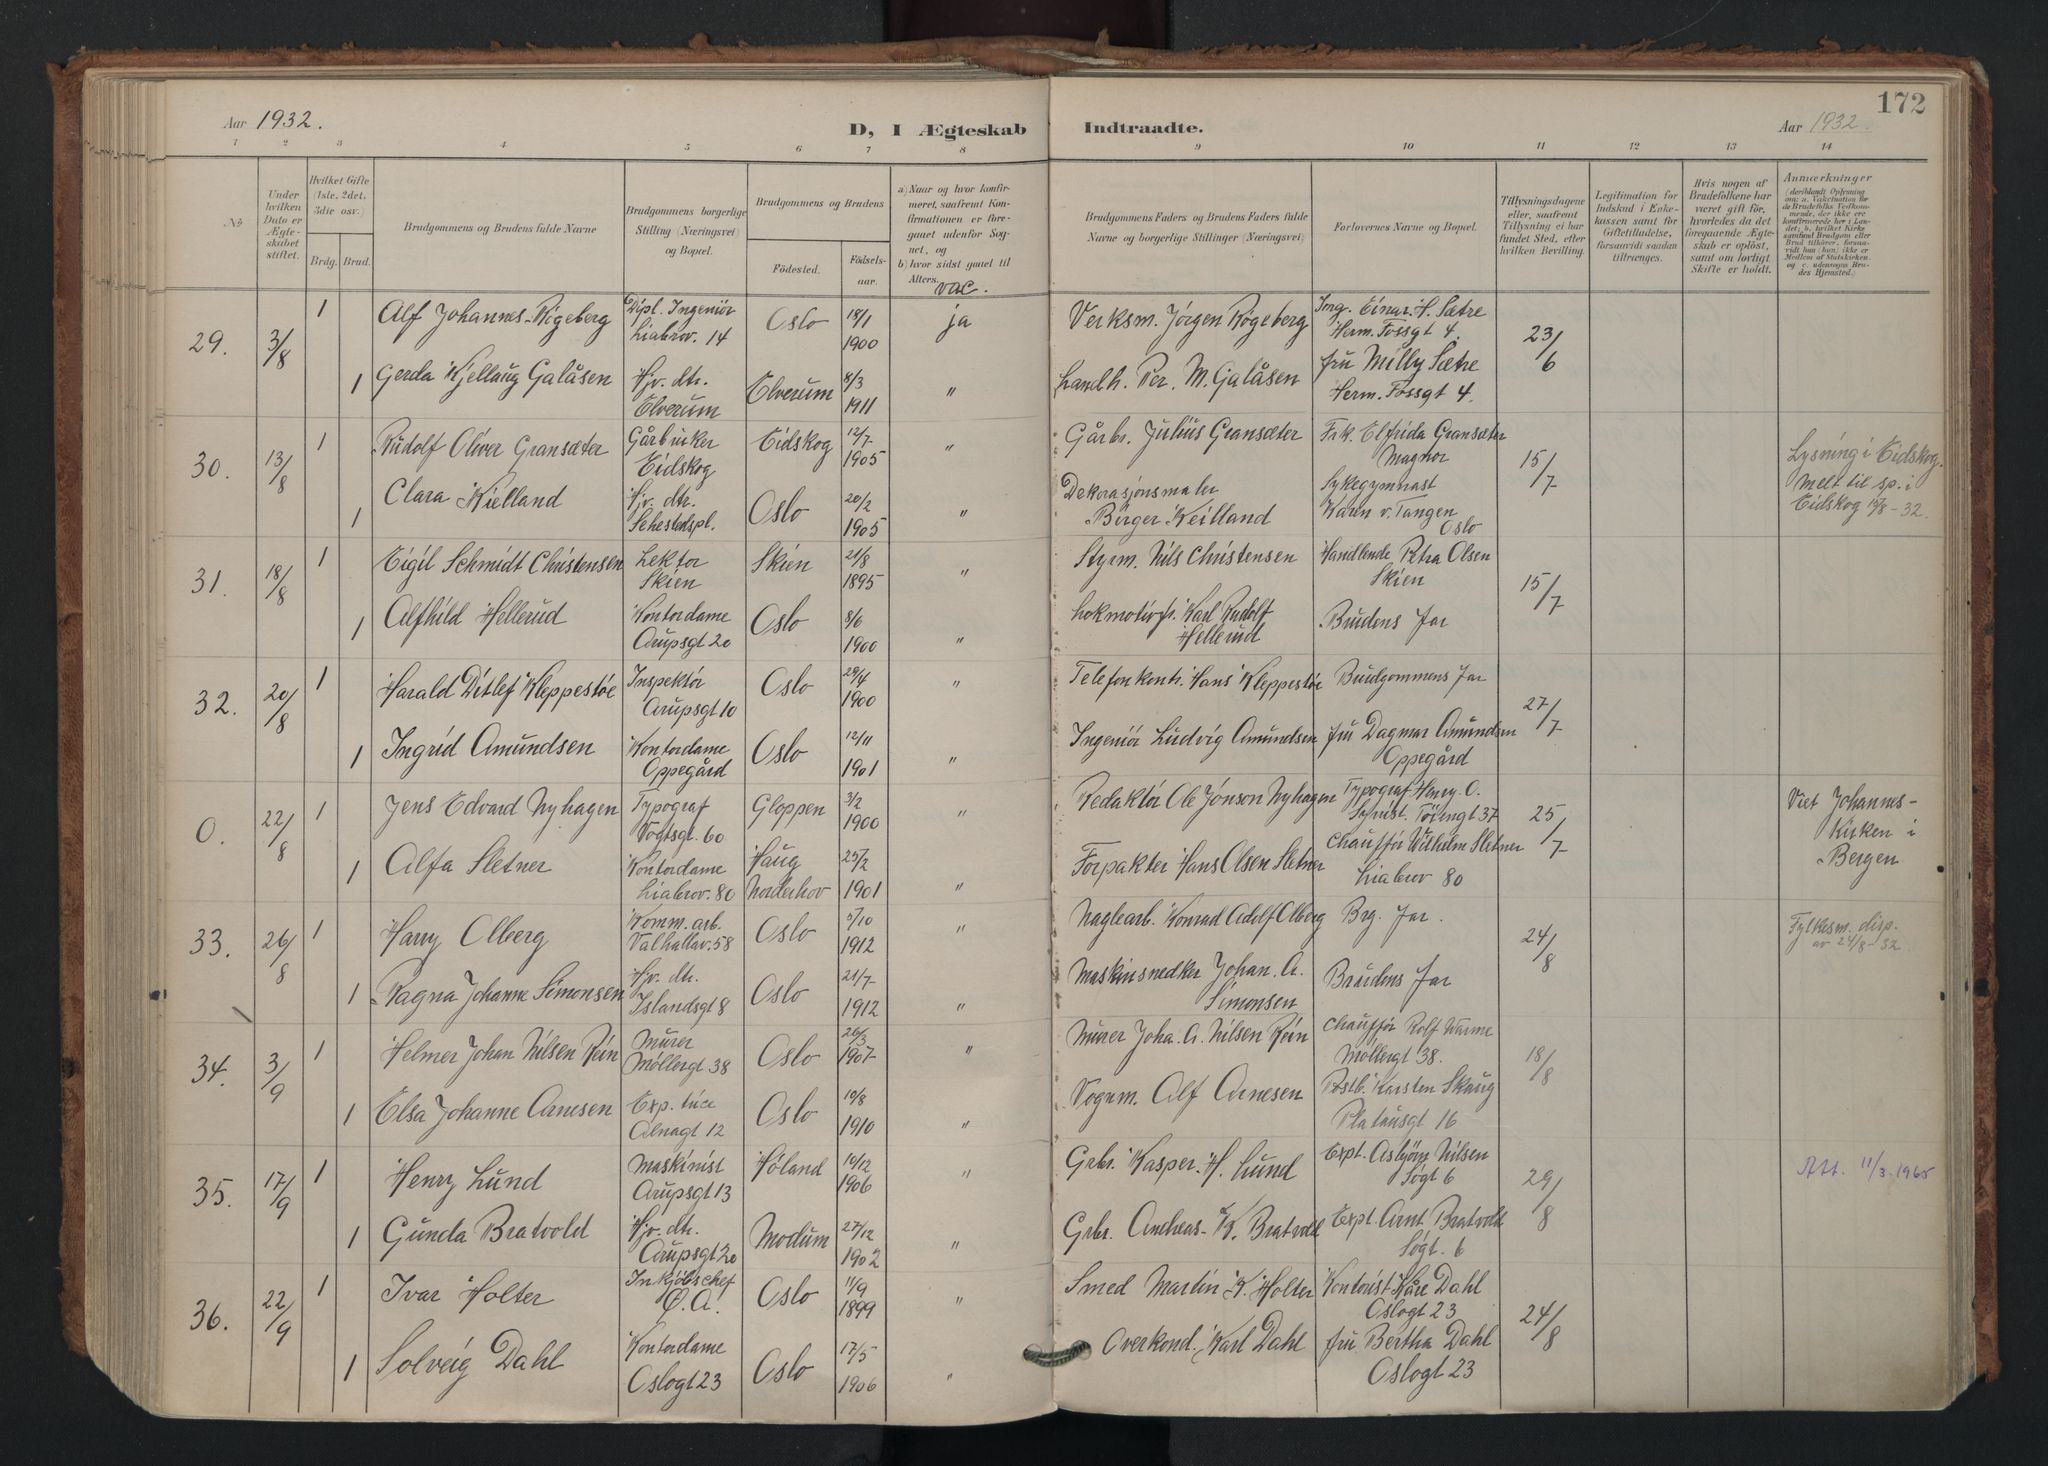 172
Aar 1932.
D, I Ægteskab Indtraadte.
Aar 1932.
1 2 3 4 5 6 7 8 9 10 11 12 13 14
No
Under hvilken Dato er Ægteskabet stiftet.
Hvilket Gifte (1ste, 2det, 3die osv.)
Brdg. Brud.
Brudgommens og Brudens fulde Navne
Brudgommens borgerlige Stilling (Næringsvei) og Bopæl.
Brudgommens og Brudens
Födested. Födselsaar.
a) Naar og hvor konfirmeret, saafremt Konfirmationen er foregaaet udenfor Sognet, og
b) hvor sidst gaaet til Alters.
vac.
Brudgommens Faders og Brudens Faders fulde Navne og borgerlige Stillinger (Næringsvei).
Forlovernes Navne og Bopæl.
Tillysningsdagene eller, saafremt Tillysning ei har fundet Sted, efter hvilken Bevilling.
Legitimation for Indskud i Enkekassen samt for Giftetilladelse, forsaavidt saadan tiltrænges.
Hvis nogen af Brudefolkene har været gift för, hvorledes da det foregaaende Ægteskab er oplöst, samt om lovligt Skifte er holdt.
Anmærkninger
29. 3/8 1 Alf Johannes Rigeberg Dipl. Ingeniör Liabrov. 14 Oslo 18/1 1900 ja Verksm. Jörgen Rögeberg Ing. Einar H. Sætre Herm. Fossgt 4. 23/6
1 Gerda Kjellaug Galåsen Hjv. dtr. Elverum Elverum 8/3 1911 " Landh. Per. M. Galåsen fru Milly Sætre Herm. Fossgt 4.
30. 13/8 1 Rudolf Oliver Gransæter Gårbruker Eidskog Eidskog 12/7 1905 " Gårbr. Julius Gransæter Frk. Elfrida Gransæter Magnor 15/7 Lysning i Eidskog. Melt til sp. i Eidskog 15/8-32.
1 Clara Kielland Hjv. dtr. Sehestedspl. Oslo 20/2 1905 " Dekorasjonsmaler Börger Keilland Sykegymnast Karen v. Tangen Oslo
31. 18/8 1 Eigil Schmidt Christensen Lektor Skien Skien 21/8 1895 " Styrm. Nils Christensen Handlende Petra Olsen Skien 15/7
1 Alfhild Hellerud Kontordame Arupsgt 20 Oslo 8/6 1900 " Lokmotivf. Karl Rudolf Hellerud Brudens far
32. 20/8 1 Harald Ditlef Kleppestöe Inspektör Arupsgt 10 Oslo 28/4 1900 " Telefonkontr. Hans Kleppestöe Brudgommens far 27/7
1 Ingrid Amundsen Kontordame Oppegård Oslo 12/11 1901 " Ingeniör Ludvig Amundsen fru Dagmar Amundsen Oppegård
0. 22/8 1 Jens Edvard Nyhagen Typograf Vogtsgt. 60 Gloppen 3/2 1900 " Redaktör Ole Jönson Nyhagen Typograf Henry O. 25/7 Viet Johannes-Kirken i Bergen
1 Alfa Sletner Kontordame Liabrov. 80 Haug Norderhov 25/2 1901 " Forpakter Hans Olsen Sletner Chaufför Wilhelm Sletner Liabrov 80
33. 26/8 1 Harry Olberg Komm. arb. Valhallav. 58 Oslo 5/10 1912 " Naglearb. Konrad Adolf Olberg Brg. far. 24/8 Fylkesm. disp. av 24/8-32.
1 Ragna Johanne Simonsen Hjv. dtr. Islandsgt 8 Oslo 21/7 1912 " Maskinsnedker Johan. A. Simonsen Brudens far
34. 3/9 1 Helmer Johan Nilsen Rein Murer Möllergt 38 Oslo 26/3 1907 " Murer Joha. A. Nilsen Rein Chaufför Rolf Warme Möllergt 38. 18/8
1 Elsa Johanne Arnesen Exp. trice Alnagt 12 Oslo 10/8 1910 " Vognm. Alf Arnesen Postb. Karsten Skaug Platausgt 16
35. 17/9 1 Henry Lund Maskinist Arupsgt 13 Höland 10/12 1906 " Grbr. Kasper H. Lund Expt. Asbjörn Nilsen Søgt 6 29/8 Att. 11/3.1965
1 Gunda Bratvold Hjv. dtr. Arupsgt 20 Modum 27/12 1902 " Grbr. Andreas K. Bratvold Expt. Arnt Bratvold Søgt. 6
36. 22/9 1 Ivar Holter Inkjöbschef Ö.A. Oslo 11/9 1899 " Smed Martin K. Holter Kontorist Kåre Dahl Oslogt 23 24/8
1 Solveig Dahl Kontordame Oslogt 23 Oslo 17/5 1906 " Overkond. Karl Dahl fru Bertha Dahl Oslogt 23